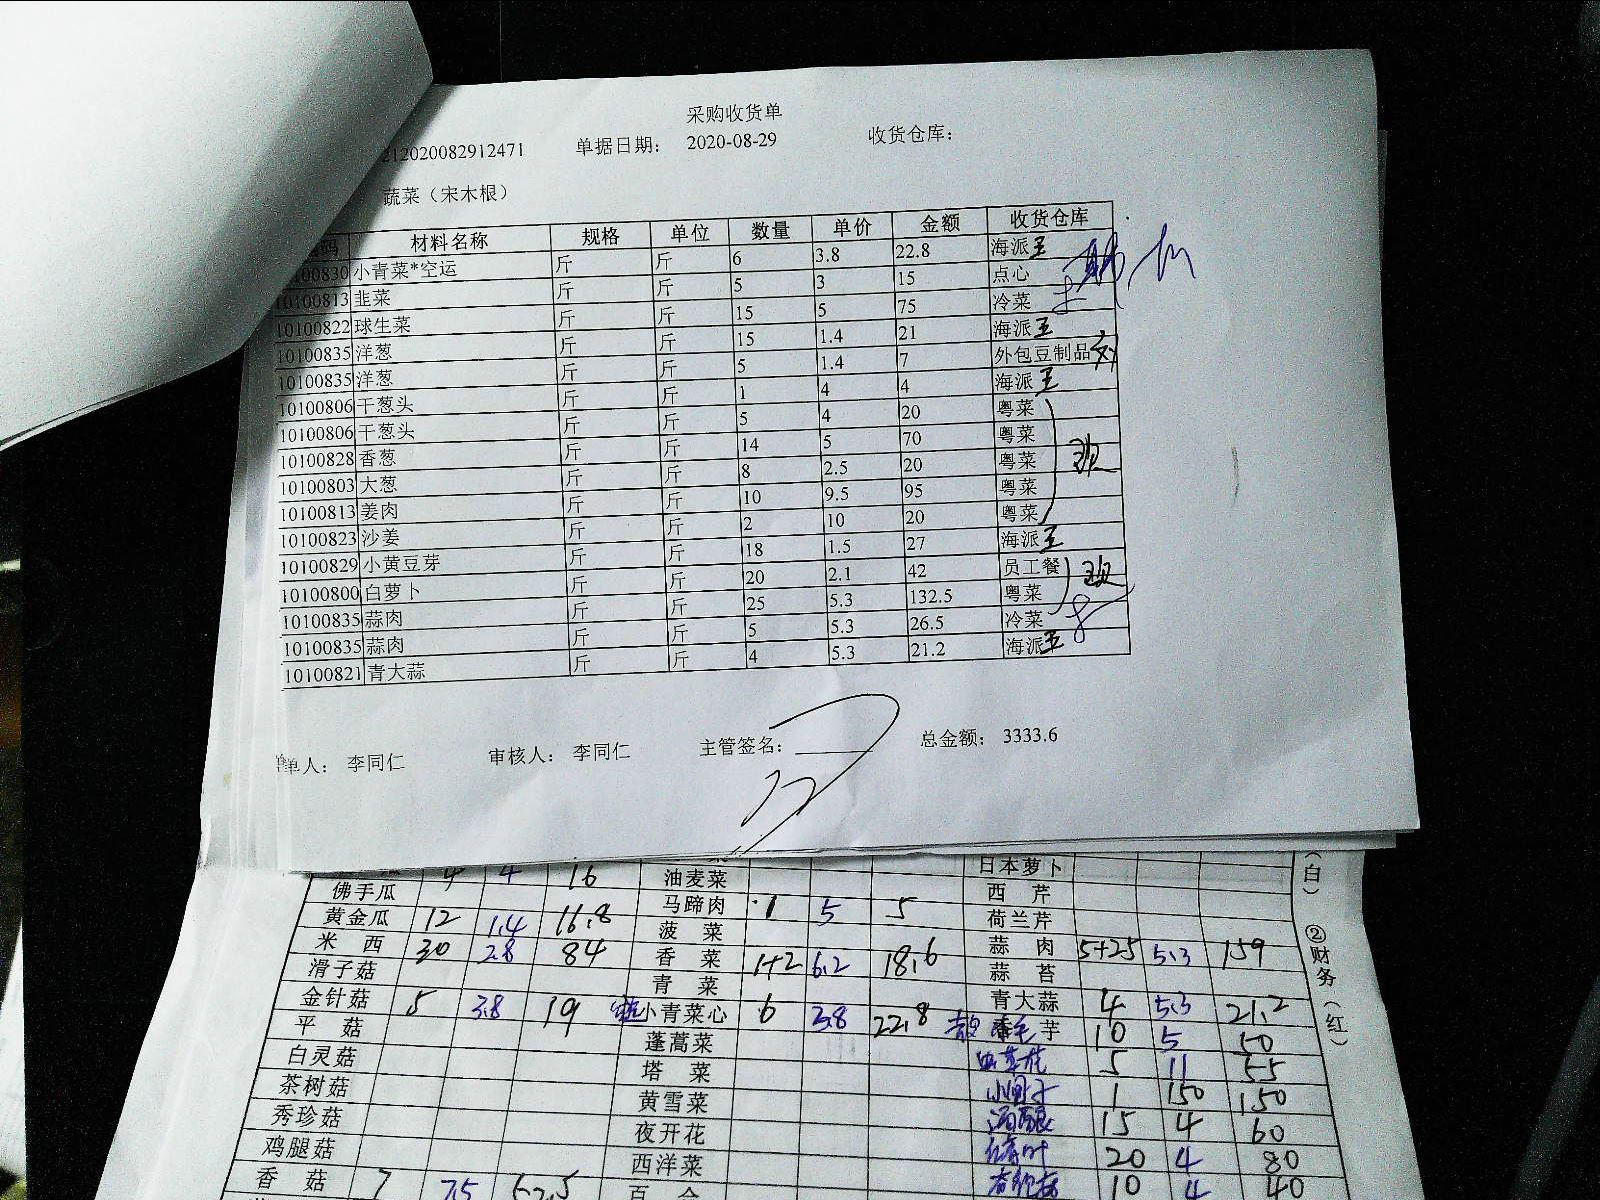 采购收货单
212020082912471 单据日期： 2020-08-29 收货仓库：
蔬菜（宋木根）
码 材料名称 规格 单位 数量 单价 金额 收货仓库
100830 小青菜*空运 斤 斤 6 3.8 22.8 海派 王
10100813 韭菜 斤 斤 5 3 15 点心
10100822 球生菜 斤 斤 15 5 75 冷菜
10100835 洋葱 斤 斤 15 1.4 21 海派 王
10100835 洋葱 斤 斤 5 1.4 7 外包豆制品
10100806 干葱头 斤 斤 1 4 4 海派 王
10100806 干葱头 斤 斤 5 4 20 粤菜
10100828 香葱 斤 斤 14 5 70 粤菜
10100803 大葱 斤 斤 8 2.5 20 粤菜
10100813 姜肉 斤 斤 10 9.5 95 粤菜
10100823 沙姜 斤 斤 2 10 20 粤菜
10100829 小黄豆芽 斤 斤 18 1.5 27 海派 王
10100800 白萝卜 斤 斤 20 2.1 42 员工餐
10100835 蒜肉 斤 斤 25 5.3 132.5 粤菜
10100835 蒜肉 斤 斤 5 5.3 26.5 冷菜
10100821 青大蒜 斤 斤 4 5.3 21.2 海派 王
单人： 李同仁 审核人： 李同仁 主管签名： 总金额： 3333.6
4 4 16 油麦菜 日本萝卜
佛手瓜 马蹄肉 1 5 5 西 芹
黄金瓜 12 1.4 16.8 菠 菜 荷兰芹
米 西 30 2.8 84 香 菜 1+2 6.2 18.6 蒜 肉 5+25 5.3 159
滑子菇 青 菜 蒜 苔
金针菇 5 3.8 19 小青菜心 6 3.8 22.8 青大蒜 4 5.3 21.2
平 菇 蓬蒿菜 芋 10 5 50
白灵菇 塔 菜 5 11 55
茶树菇 黄雪菜 1 150 150
秀珍菇 夜开花 15 4 60
鸡腿菇 西洋菜 20 4 80
香 菇 7 7.5 52.5 百 合 10 4 40
（白） ②财务（红）